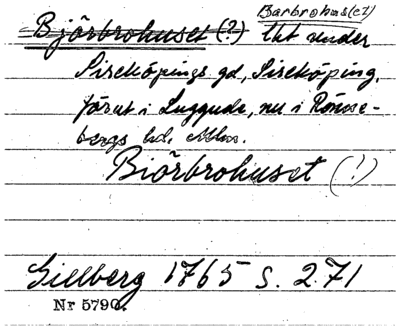 Barbrohus(et)
Bjӧrbrohuset (?) tht under
Sireköpings gd, Sireköping,
förut i Luggude, nu i Rönne-
bergs hd. Mlm.
Biörbrohuset (!)
Gillberg 1765 s. 271
Nr 5790.